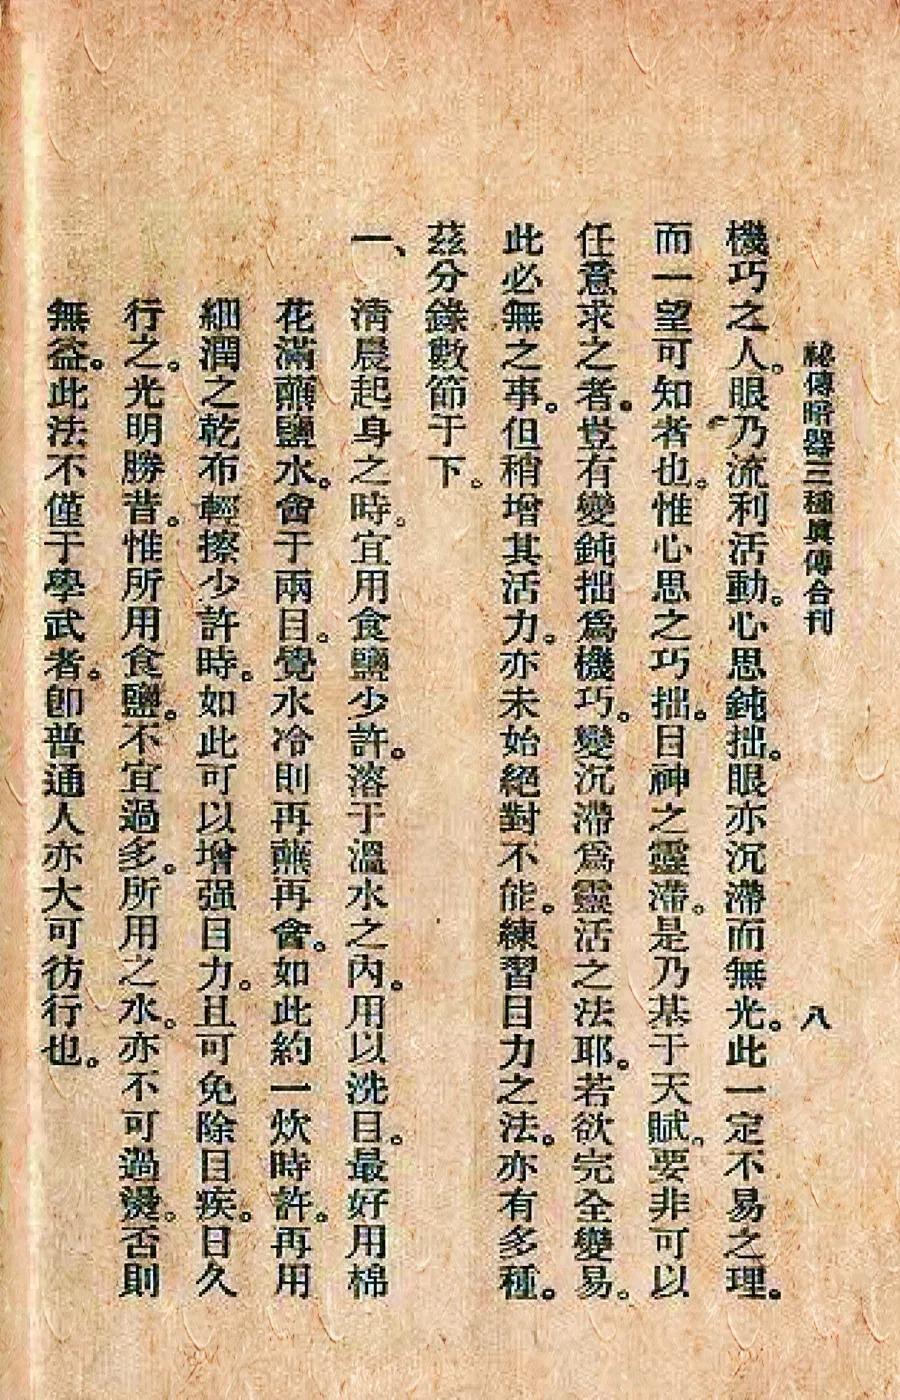 祕傳暗器三種眞傳合刊
八
機巧之人。眼乃流利活動。心思鈍拙。眼亦沉滯而無光。此一定不易之理。
而一望可知者也。惟心思之巧拙。目神之靈滯。是乃基于天賦。要非可以
任意求之者。豈有變鈍拙爲機巧。變沉滯爲靈活之法耶。若欲完全變易。
此必無之事。但稍增其活力。亦未始絕對不能。練習目力之法。亦有多種。
茲分錄數節于下。
一、淸晨起身之時。宜用食鹽少許。溶于溫水之內。用以洗目。最好用棉
花滿蘸鹽水。會于兩目。覺水冷則再蘸再會。如此約一炊時許。再用
細潤之乾布輕擦少許時。如此可以增强目力。且可免除目疾。日久
行之。光明勝昔。惟所用食鹽。不宜過多。所用之水。亦不可過燙。否則
無益。此法不僅于學武者。卽普通人亦大可彷行也。